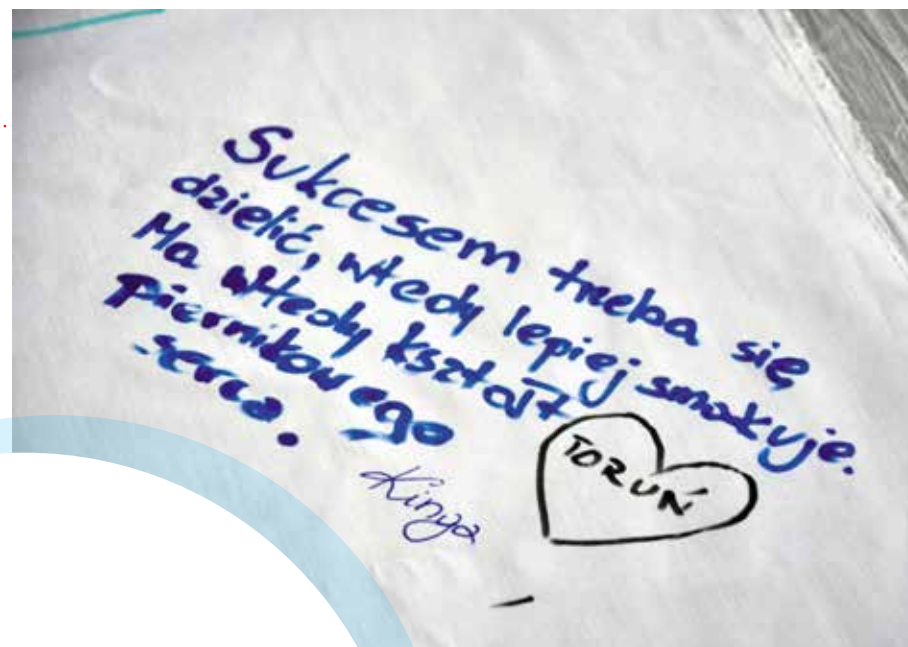 Sukcesem trzeba się
dzielić, wtedy lepiej smakuje.
Ma wtedy kształt
piernikowego
serca.
Kinga
TORUŃ